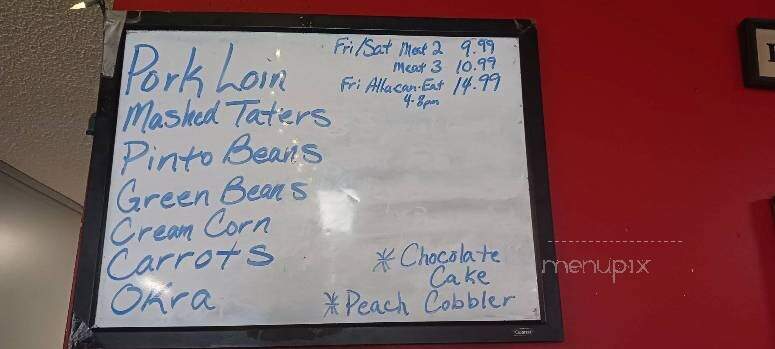 Pork Loin
Mashed Taters
Pinto Beans
Green Beans
Cream Corn
Carrots
Okra
Fri/Sat Meat 2 9.99
Meat 3 10.99
Fri Allucan-Eat 14.99
4-8pm
* Chocolate
Cake
* Peach Cobbler
menupix